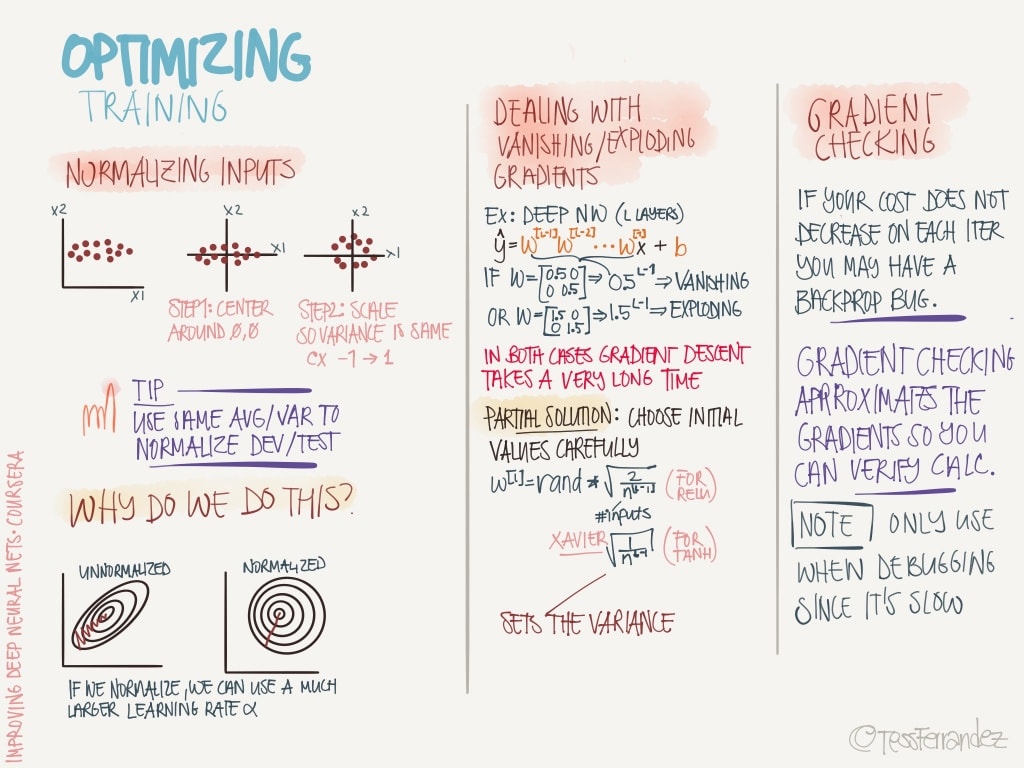 OPTIMIZING
TRAINING
NORMALIZING INPUTS
X2
X1
X2
X1
X2
X1
STEP1: CENTER
AROUND 0,0
STEP2: SCALE
SO VARIANCE IS SAME
EX -1 → 1
TIP
USE SAME AVG/VAR TO
NORMALIZE DEV/TEST
WHY DO WE DO THIS?
UNNORMALIZED
NORMALIZED
IF WE NORMALIZE, WE CAN USE A MUCH
LARGER LEARNING RATE α
DEALING WITH
VANISHING/EXPLODING
GRADIENTS
EX: DEEP NW (L LAYERS)
ŷ = W^[L-1] W^[L-2] ... W^[1] x + b
IF W = [0.5 0 0 0.5] ⇒ 0.5^L-1 ⇒ VANISHING
OR W = [1.5 0 0 1.5] ⇒ 1.5^L-1 ⇒ EXPLODING
IN BOTH CASES GRADIENT DESCENT
TAKES A VERY LONG TIME
PARTIAL SOLUTION: CHOOSE INITIAL
VALUES CAREFULLY
W^[l] = rand * √(2/n^[l-1]) (FOR RELU)
#inputs
XAVIER √(1/n^[l-1]) (FOR TANH)
SETS THE VARIANCE
GRADIENT
CHECKING
IF YOUR COST DOES NOT
DECREASE ON EACH ITER
YOU MAY HAVE A
BACKPROP BUG.
GRADIENT CHECKING
APPROXIMATES THE
GRADIENTS SO YOU
CAN VERIFY CALC.
NOTE ONLY USE
WHEN DEBUGGING
SINCE IT'S SLOW
IMPROVING DEEP NEURAL NETS • COURSERA
@TessFerrandez